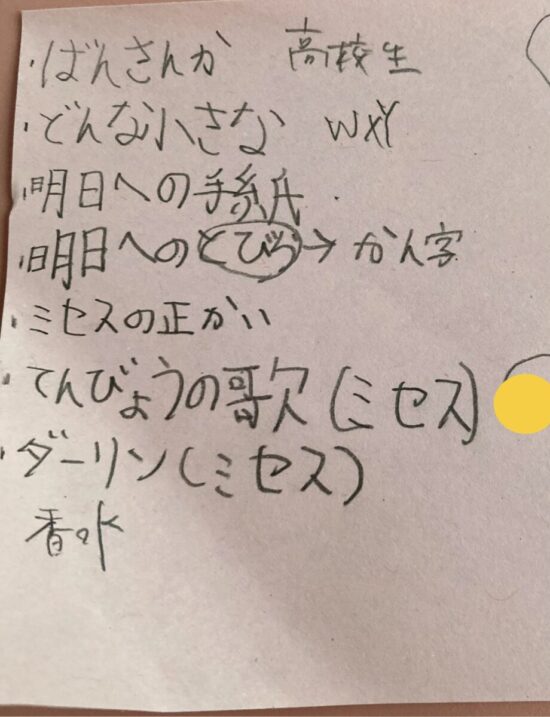 ・ばんさんか 高校生
・どんな小さな WXY
・明日への手紙
・明日へのとびら→かん字
・ミセスの正かい
・てんびょうの歌(ミセス)
・ダーリン(ミセス)
香水